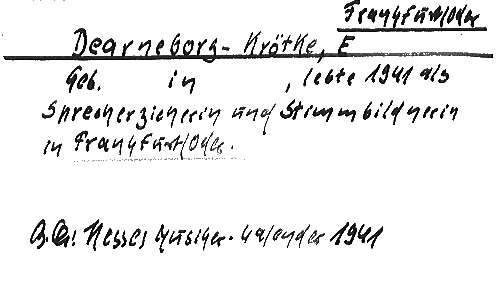 Frankfurt/Oder
Dearneborg-Krötke, E
Geb. in , lebte 1941 als
Sprecherzieherin und Stimmbildnerin
in Frankfurt/Oder.
Hesses Musiker-Kalender 1941